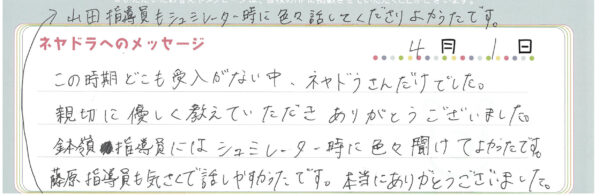 → 山田指導員もシュミレーター時に色々話してくださりよかったです。
ネヤドラへのメッセージ
4月1日
この時期どこも受入がない中、ネヤドラさんだけでした。
親切に優しく教えていただきありがとうございました。
指導員にはシュミレーター時に色々聞けてよかったです。
藤原指導員も気さくで話しやすかったです。本当にありがとうございました。